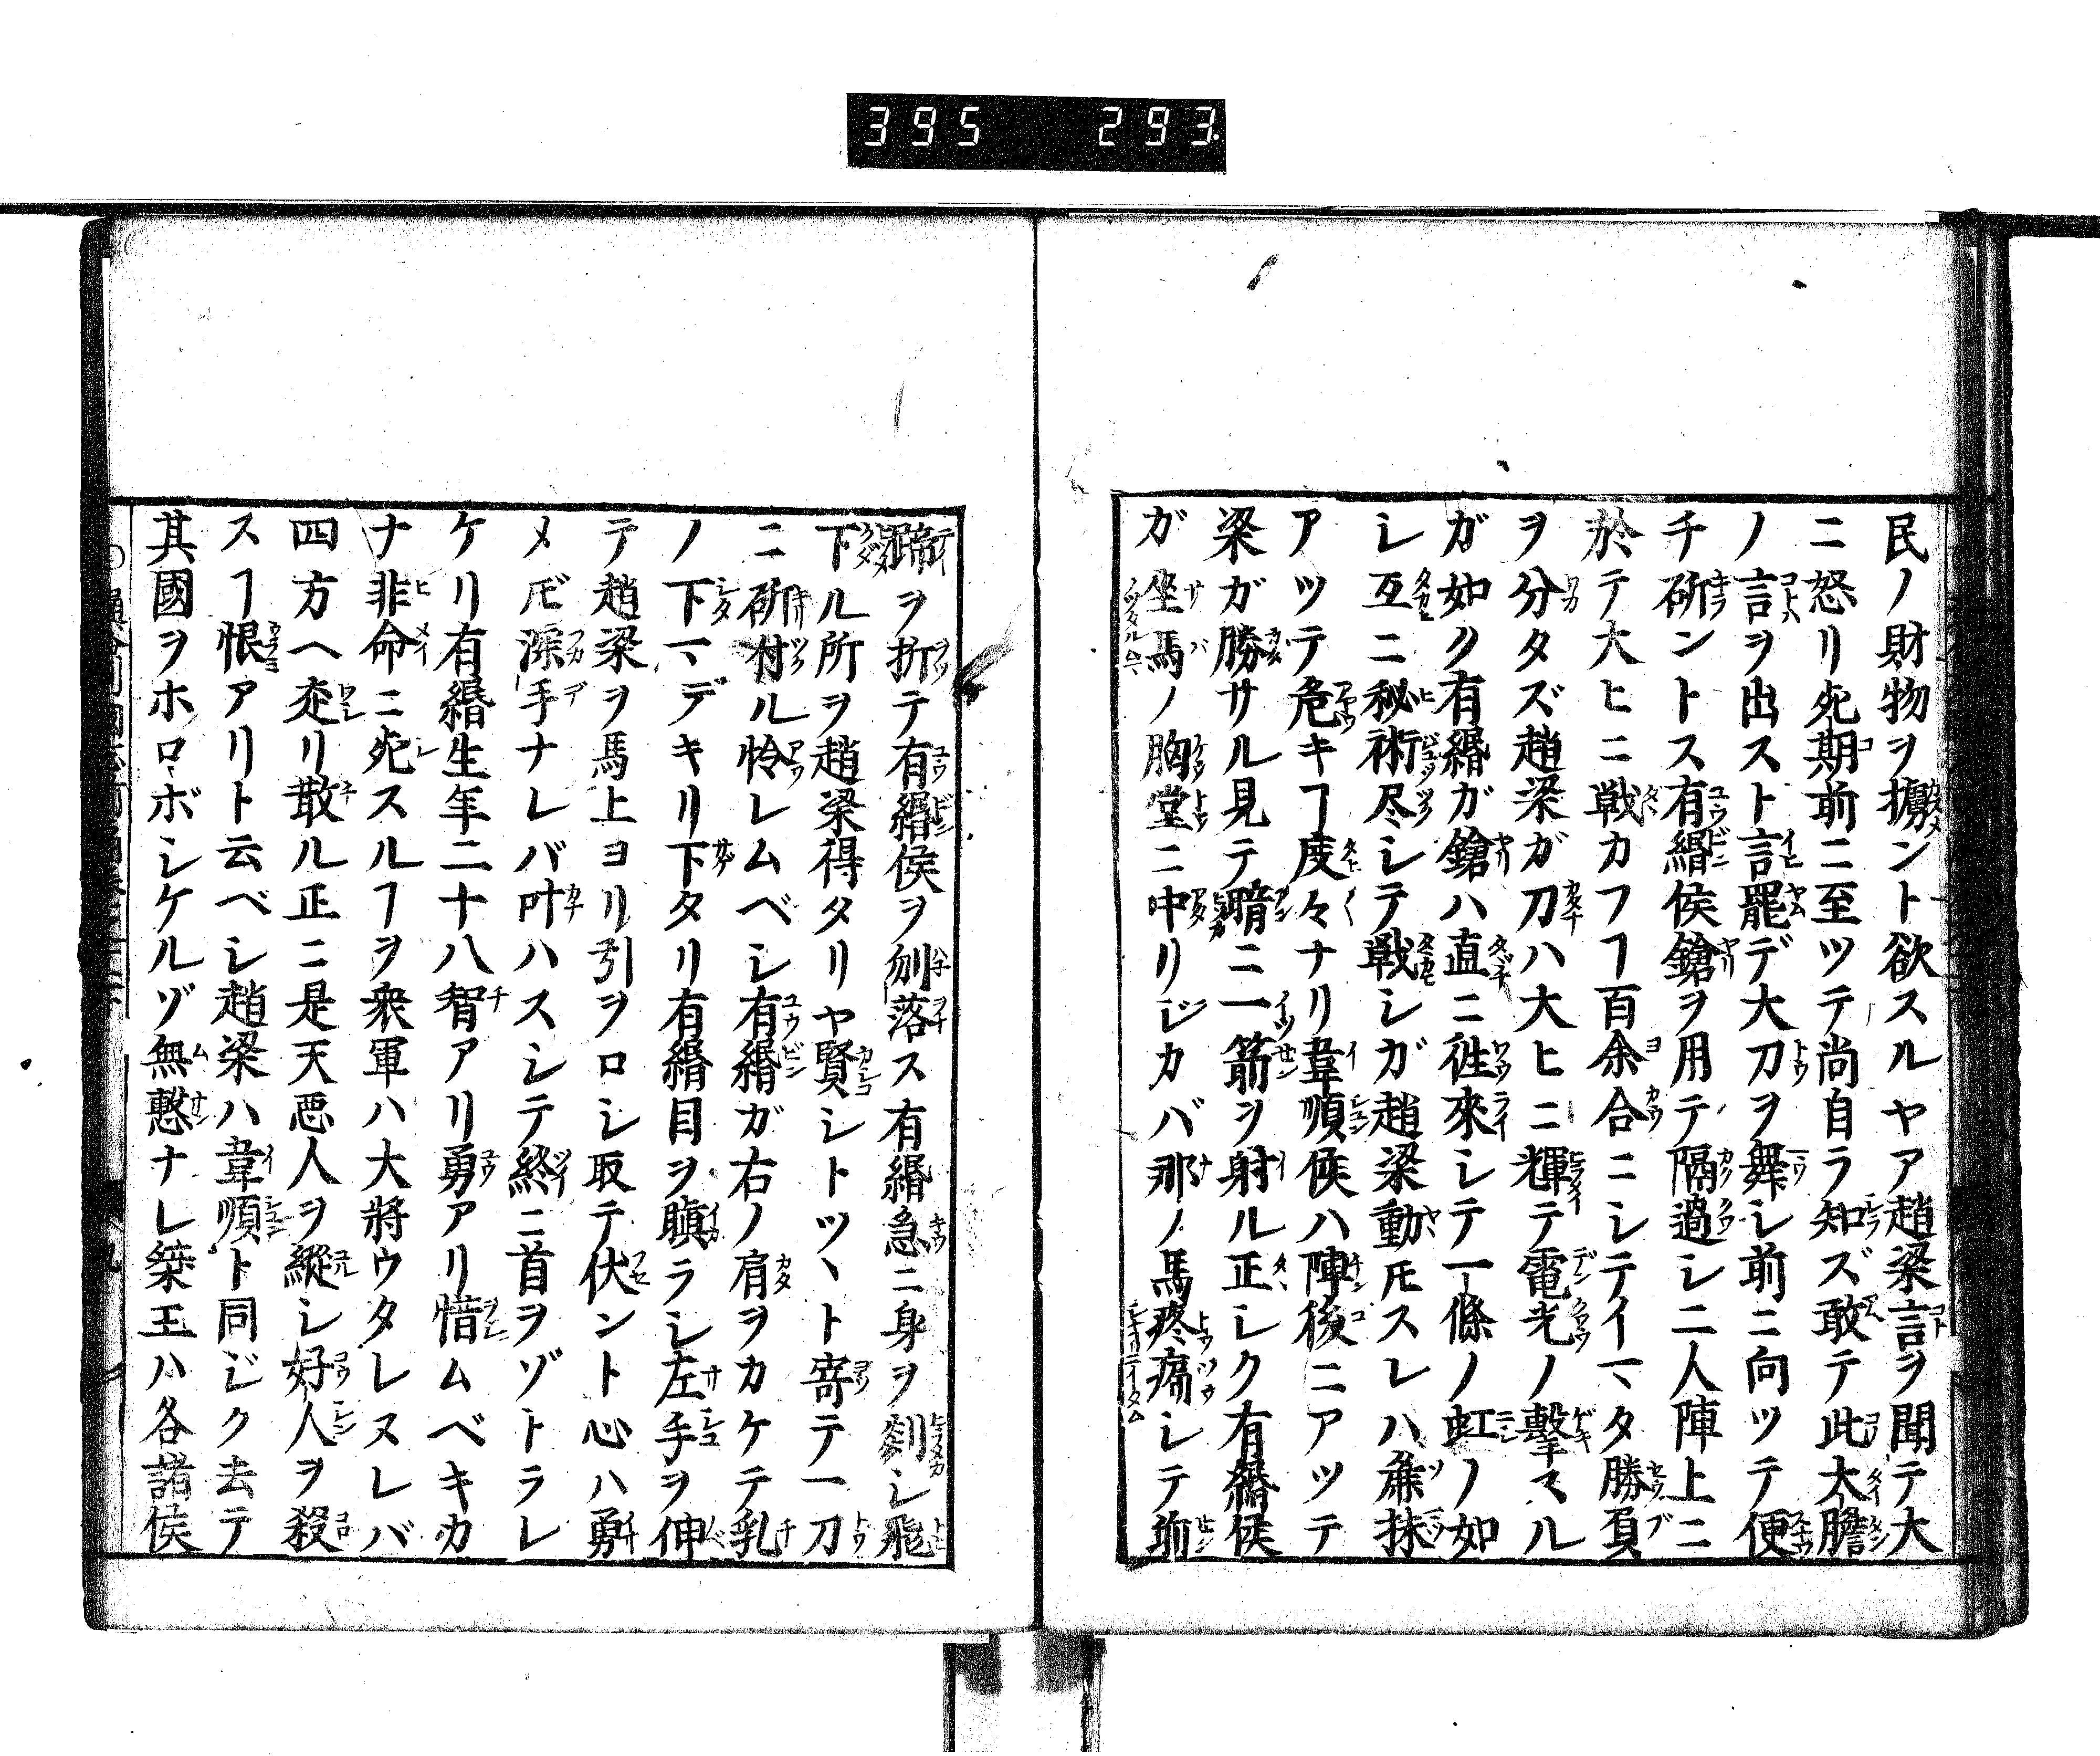 395 293
民ノ財物ヲ擄ント欲スルヤア趙梁言ヲ聞テ大
ニ怒リ死期前ニ至ツテ尚自ラ知ズ敢テ此大膽
ノ言ヲ出スト言罷デ大刀ヲ舞シ前ニ向ツテ便
チ斫ントス有緡侯鎗ヲ用テ隔過シ二人陣上ニ
於テ大ヒニ戦カフヿ百余合ニシテイマタ勝負
ヲ分タズ趙梁ガ刀ハ大ヒニ輝テ電光ノ撃スル
ガ如ク有緡ガ鎗ハ直ニ徃來シテ一條ノ虹ノ如
シ互ニ秘術尽シテ戦シガ趙梁動モスレハ麁抹
アツテ危キヿ度々ナリ韋順侯ハ陣後ニアツテ
梁ガ勝サル見テ暗ニ一箭ヲ射ル正シク有緡侯
ガ坐馬ノ胸堂ニ中リシカバ那ノ馬疼痛シテ前
蹄ヲ折テ有緡侯ヲ刎落ス有緡急ニ身ヲ剡シ飛
下ル所ヲ趙梁得タリヤ賢シトツヽト寄テ一刀
ニ斫付ル怜レムベシ有緡ガ右ノ肩ヲカケテ乳
ノ下マデキリ下タリ有緡目ヲ瞋ラシ左手ヲ伸
テ趙梁ヲ馬上ヨリ引ヲロシ取テ伏ント心ハ勇
メ𪜈深手ナレバ叶ハスシテ終ニ首ヲゾトラレ
ケリ有緡生年二十八智アリ勇アリ惜ムベキカ
ナ非命ニ死スルヿヲ衆軍ハ大將ウタレヌレバ
四方ヘ迯リ散ル正ニ是天悪人ヲ縱シ好人ヲ殺
スヿ恨アリト云ベシ趙梁ハ韋順ト同ジク去テ
其國ヲホロボシケルゾ無慙ナレ桀王ハ各諸侯